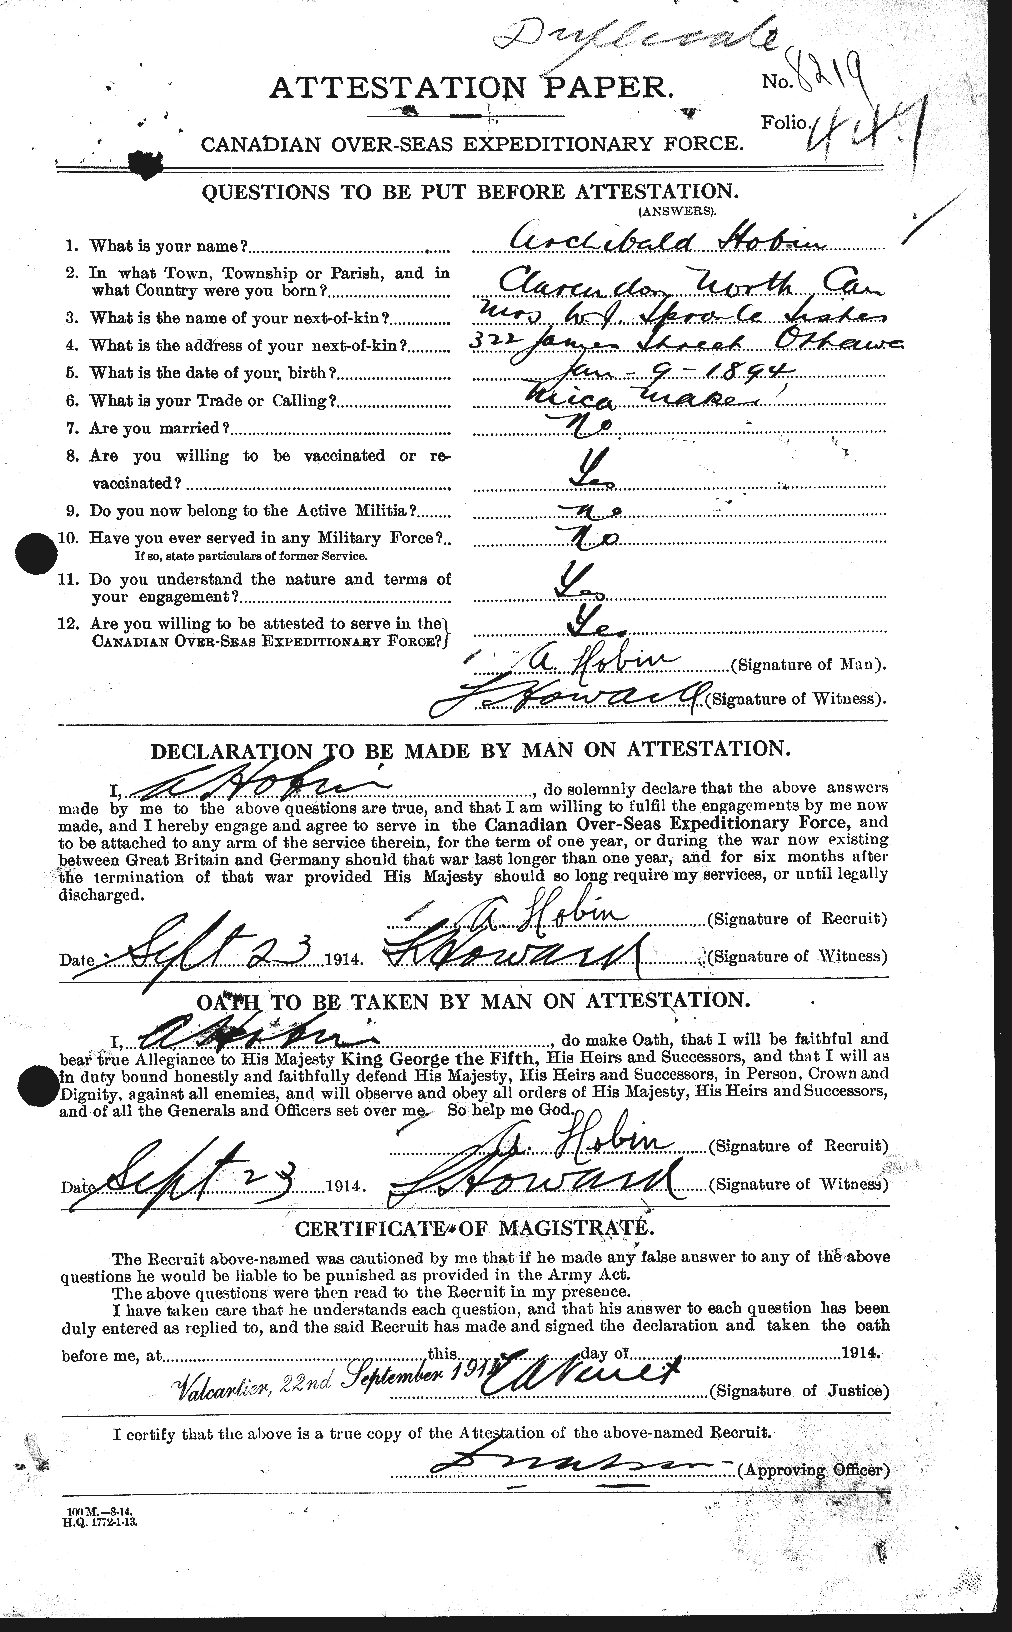 Duplicate
ATTESTATION PAPER.
No. 8219
Folio. 447
CANADIAN OVER-SEAS EXPEDITIONARY FORCE.
QUESTIONS TO BE PUT BEFORE ATTESTATION.
(ANSWERS).
1. What is your name? Archibald Hobin
2. In what Town, Township or Parish, and in
what Country were you born? Clarendon North Can
3. What is the name of your next-of-kin? Mrs W.J. Sproule Sister
4. What is the address of your next-of-kin? 322 James Street Ottawa
5. What is the date of your birth? Jan - 9 - 1894
6. What is your Trade or Calling? Mica Maker
7. Are you married? No
8. Are you willing to be vaccinated or re-
vaccinated? Yes
9. Do you now belong to the Active Militia? No
10. Have you ever served in any Military Force? No
If so, state particulars of former Service.
11. Do you understand the nature and terms of
your engagement? Yes
12. Are you willing to be attested to serve in the
CANADIAN OVER-SEAS EXPEDITIONARY FORCE? Yes
A. Hobin (Signature of Man).
Howard (Signature of Witness).
DECLARATION TO BE MADE BY MAN ON ATTESTATION.
I, A Hobin, do solemnly declare that the above answers
made by me to the above questions are true, and that I am willing to fulfil the engagements by me now
made, and I hereby engage and agree to serve in the Canadian Over-Seas Expeditionary Force, and
to be attached to any arm of the service therein, for the term of one year, or during the war now existing
between Great Britain and Germany should that war last longer than one year, and for six months after
the termination of that war provided His Majesty should so long require my services, or until legally
discharged.
A Hobin (Signature of Recruit)
Date Sept 23 1914. Howard (Signature of Witness)
OATH TO BE TAKEN BY MAN ON ATTESTATION.
I, A Hobin, do make Oath, that I will be faithful and
bear true Allegiance to His Majesty King George the Fifth, His Heirs and Successors, and that I will as
in duty bound honestly and faithfully defend His Majesty, His Heirs and Successors, in Person, Crown and
Dignity, against all enemies, and will observe and obey all orders of His Majesty, His Heirs and Successors,
and of all the Generals and Officers set over me. So help me God.
A. Hobin (Signature of Recruit)
Date Sept 23 1914. Howard (Signature of Witness)
CERTIFICATE OF MAGISTRATE.
The Recruit above-named was cautioned by me that if he made any false answer to any of the above
questions he would be liable to be punished as provided in the Army Act.
The above questions were then read to the Recruit in my presence.
I have taken care that he understands each question, and that his answer to each question has been
duly entered as replied to, and the said Recruit has made and signed the declaration and taken the oath
before me, at this day of 1914.
Valcartier, 22nd September 1914 (Signature of Justice)
I certify that the above is a true copy of the Attestation of the above-named Recruit.
(Approving Officer)
100 M.—8-14.
H.Q. 1772-1-13.